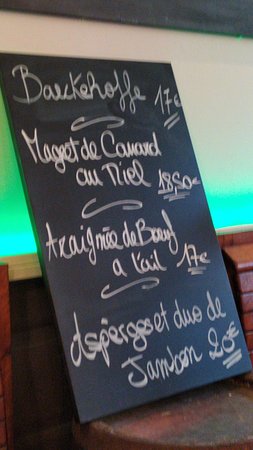 Baeckehoffe 17€
Magret de Canard
au Miel 18,50€
Araignée de Boeuf
a l'ail 17€
Asperges et duo de
Jambon 20€